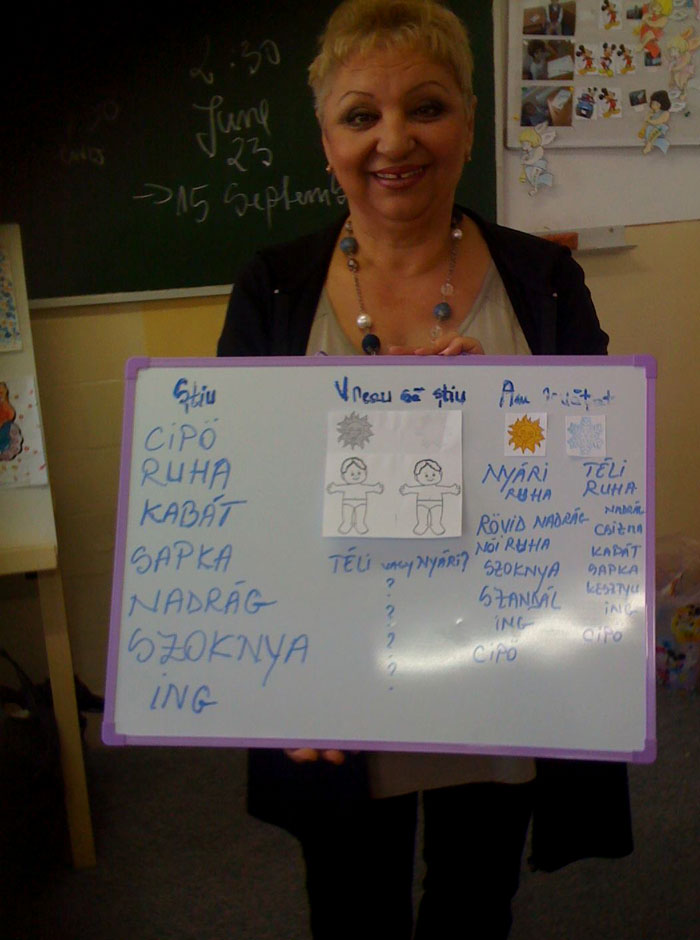 2.30
June
23
→15 Septem
Știu
CIPŐ
RUHA
KABÁT
SAPKA
NADRÁG
SZOKNYA
ING
Vreau să știu
TÉLI VAGY NYÁRI?
?
?
?
?
Am
NYÁRI
RUHA
RÖVID NADRÁG
NŐI RUHA
SZOKNYA
SZANDÁL
ING
CIPŐ
TÉLI
RUHA
NADRÁG
CSIZMA
KABÁT
SAPKA
KESZTYU
ING
CIPŐ